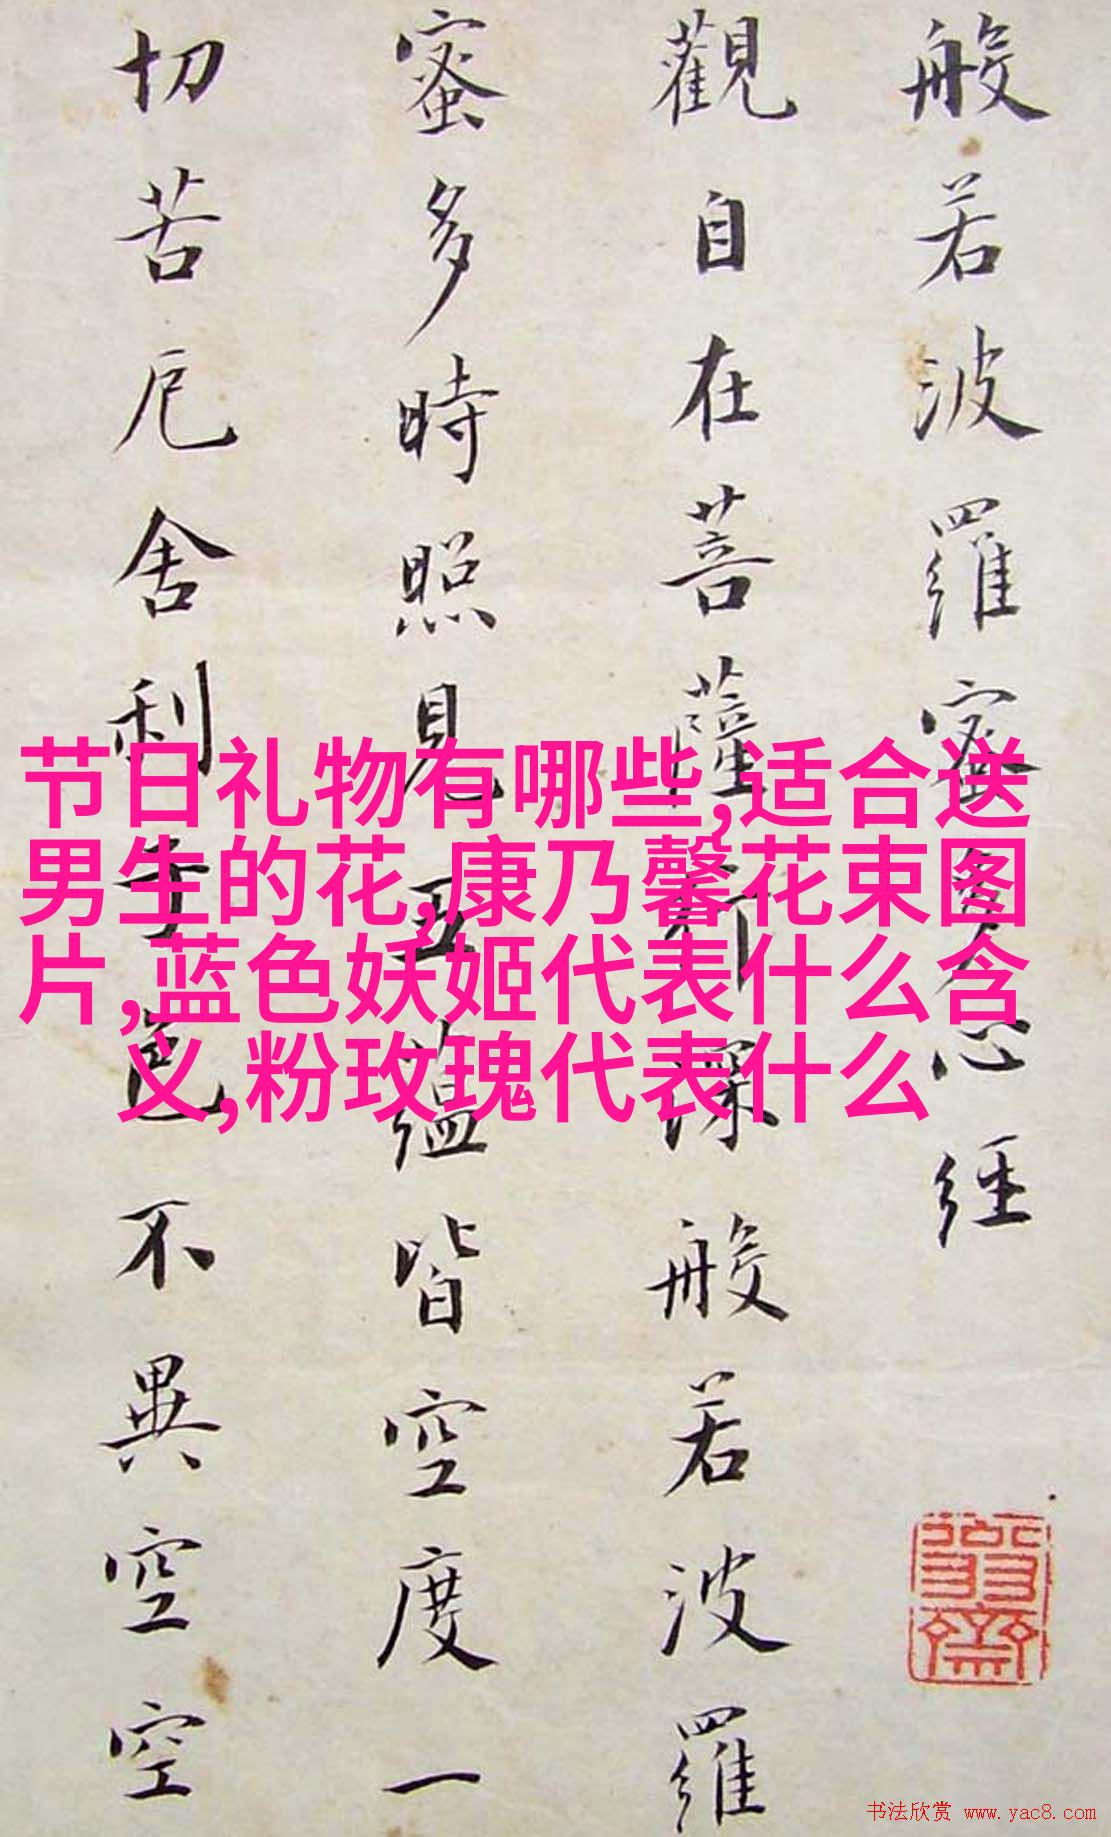 般若波羅蜜多心經
觀自在菩薩行深般若波羅
蜜多時照見五蘊皆空度一
切苦厄舍利子色不異空空
节日礼物有哪些,适合送
男生的花,康乃馨花束图
片,蓝色妖姬代表什么含
义,粉玫瑰代表什么
书法欣赏 www.yac8.com